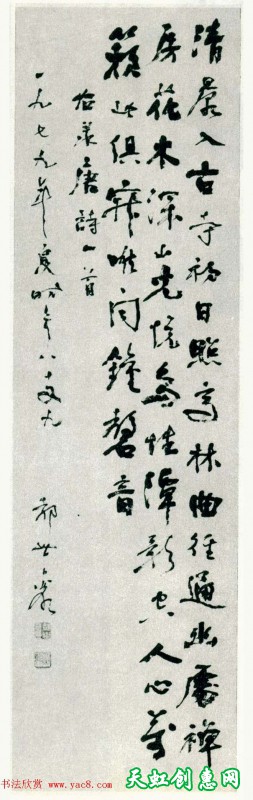 清晨入古寺初日照高林曲徑通幽處禪
房花木深山光悅鳥性潭影空人心萬
籟此俱寂唯聞鐘磬音
右录唐詩一首
一九七九年夏時年八十又九
书法欣赏 www.yac8.com
天虹创意网